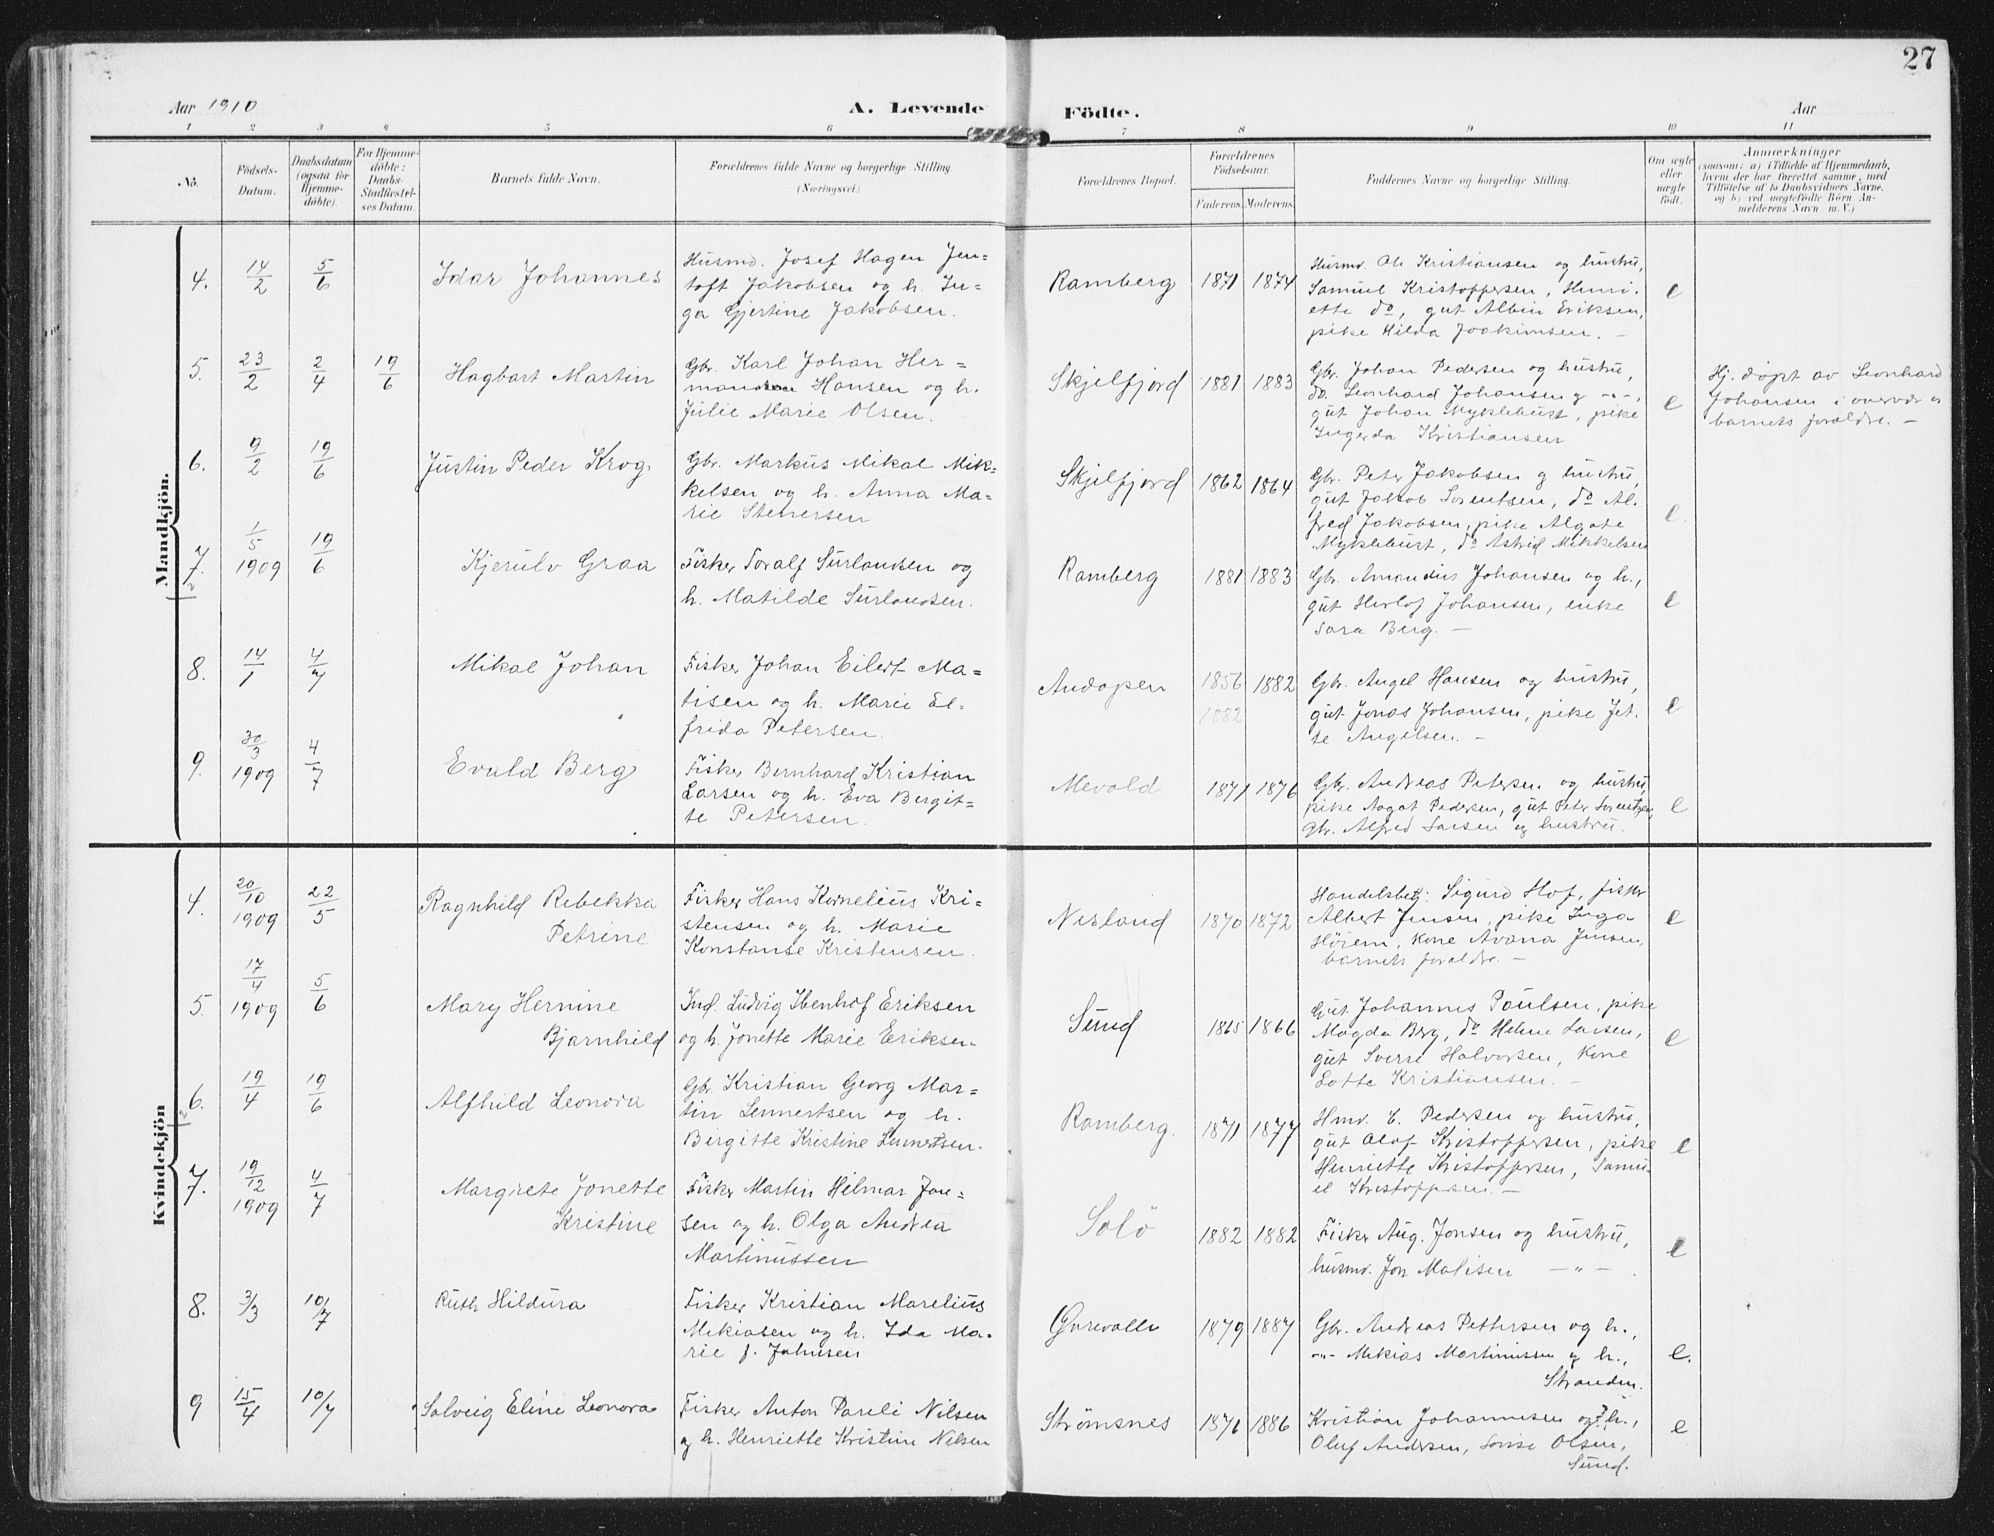 27
Aar 1910
A. Levende
Födte.
Aar
1 2 3 4 5 6 7 8 9 10 11
No.
Födsels-
Datum.
Daabsdatum
(ogsaa for
Hjemme-
döbte).
For Hjemme-
döbte:
Daabs-
Stadfæstel-
ses Datum.
Barnets fulde Navn.
Forældrenes fulde Navne og borgerlige Stilling
(Næringsvei.)
Forældrenes Bopæl.
Forældrenes
Födselsaar.
Faderens. Moderens.
Faddernes Navne og borgerlige Stilling.
Om ægte
eller
uægte
födt.
Anmærkninger
(saasom: a) i Tilfælde af Hjemmedaab,
hvem der har forrettet samme, med
Tilföielse af to Daabsvidners Navne,
og b) ved uægtefödte Börn An-
melderens Navn m. V.)
Mandkjön.
4. 14/2 5/6 Idar Johannes
Husmd. Josef Hagen Jen=
toft Jakobsen og h. In-
ga Gjertine Jakobsen.
Ramberg 1871 1874
Husmd. Ole Kristiansen og hustru,
Samuel Kristoffersen, Henri-
ette do, gut Albin Eriksen,
pike Hilda Joakimsen. -
e
5. 23/2 2/4 19/6 Hagbart Martin
Gbr. Karl Johan Her=
man Hansen og h.
Julie Marie Olsen.
Skjelfjord 1881 1883
Gbr. Johan Pedersen og hustru,
do. Leonhard Johansen og -"-,
gut Johan Myklebust, pike
Ingerda Kristiansen
e
Hj. döpt av Leonhard
Johansen i overvær av
barnets foraldre. -
6. 9/2 19/6 Justin Peder Krog.
Gbr. Markus Mikal Mik=
kelsen og h. Anna Ma-
rie Stenersen
Skjelfjord 1862 1864
Gbr. Peter Jakobsen og hustru,
gut Jakob Lorentsen, do Al-
fred Jakobsen, pike Algote
Myklebust, do Astrid Mikkelsen
e.
7. 1/5 1909 19/6 Kjerulv Graa
Fisker Toralf Surlandsen og
h. Matilde Surlandsen.
Ramberg 1881 1883
Gbr. Amandus Johansen og h.,
gut Herlof Johansen, enke
Sara Berg. -
e
8. 14/1 4/7 Mikal Johan
Fisker Johan Eilert Ma=
tisen og h. Marie El-
frida Petersen.
Andopen 1856 1882
1882
Gbr. Angel Hansen og hustru,
gut Jonas Johansen, pike Jet-
te Angelsen. -
e
9. 30/3 1909 4/7 Evald Berg
Fisker Bernhard Kristian
Larsen og h. Eva Bergit=
te Petersen.
Mevold 1871 1876
Gbr. Andreas Petersen og hustru,
pike Aagot Pedersen, gut Peter Lorentzen,
Gbr. Alfred Larsen og hustru.
e
Kvindekjön
4. 20/10 1909 22/5 Ragnhild Rebekka
Petrine
Fisker Hans Kornelius Kri=
stensen og h. Marie
Konstanse Kristensen.
Nesland 1870 1872
Handelsbetj. Sigurd Hof, fisker
Albert Jensen, pike Inga
Hörem, kone Avana Jensen,
barnets foraldre. -
e
5. 17/4 1909 5/6 Mary Hernine
Bjarnhild
Ind. Ludvig Ibenhof Eriksen
og h. Jonette Marie Eriksen.
Sund 1865 1866
Gut Johannes Poulsen, pike
Magda Berg, do Helene Larsen,
gut Sverre Halvorsen, Kone
Lotte Kristiansen. -
e
6. 19/4 19/6 Alfhild Leonora
Gbr. Kristian Georg Mar=
tin Lennertsen og h.
Birgitte Kristine Lennertsen.
Ramberg. 1871 1877
Hmd. E. Pedersen og hustru,
gut Olaf Kristoffersen, pike
Henriette Kristoffersen, Samu-
el Kristoffersen. -
e
7. 19/12 1909 4/7 Margrete Jonette
Kristine
Fisker Martin Hilmar Jon=
sen og h. Olga Andrea
Martinussen
Solö 1882 1882
Fisker Aug. Jonsen og hustru,
husmd. Jon Matisen -"-.
e
8. 3/3 10/7 Ruth Hildura
Fisker Kristian Marelius
Mekiasen og h. Ida Ma-
rie f. Johnsen
Gurevalle 1879 1887
Gbr. Andreas Pettersen og h.,
-"- Mekias Martinussen og h.,
Stranden.
e.
9 15/4 10/7 Solveig Eline Leonora
Fisker Anton Pareli Nilsen
og h. Henriette Kristine Nilsen
Strömsnes 1871 1886
Kristian Johannesen og h.,
Oluf Andersen, Lovise Olsen,
Sund.
e